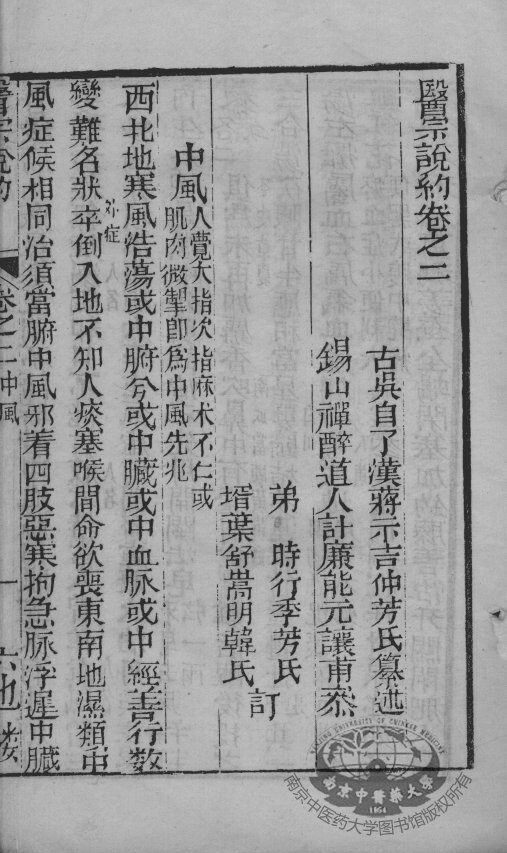 醫宗說約卷之二
古吳自了漢蔣示吉仲芳氏纂述
錫山禪醉道人計廉能元讓甫叅
弟 時行季芳氏
壻葉舒嵩明韓氏
訂
中風
人覺大指次指麻木不仁或
肌肉微掣卽爲中風先兆
西北地寒風浩蕩或中腑兮或中臟或中血脉或中經善行数
變難名狀卒倒入地不知人痰塞喉間命欲喪東南地濕類中
外症
風症候相同治須當腑中風邪着四肢惡寒拘急脉浮遲中臟
醫宗說約
卷之二中風
一
NANJING UNIVERSITY OF CHINESE MEDICINE
南京中醫藥大學
1954
南京中医药大学图书馆版权所有